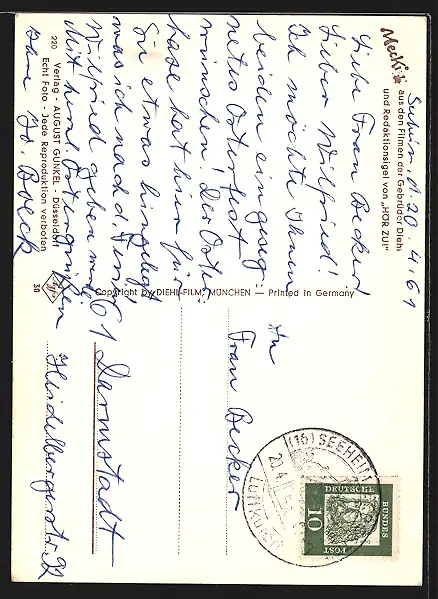 Mecki
aus den Filmen der Gebrüder Diehl
und Redaktionsigel von „HÖR ZU!"
Seeheim, d. 20. 4. 61
Liebe Frau Becker!
Lieber Wilfried!
Ich möchte Ihnen
beiden ein geseg-
netes Osterfest
wünschen! Der Oster-
hase hat hier für
Sie etwas hingelegt,
was ich nachd. Fest
Wilfried geben werde.
Mit herzl. Ostergrüßen
Ihre
Beeck
220 Verlag · AUGUST GUNKEL · Düsseldorf
Echt Foto - Jede Reproduktion verboten
Agfa
30
Copyright by DIEHL-FILM, MÜNCHEN — Printed in Germany
An
Frau Becker
61 Darmstadt
Heidelbergerstr.
(16) SEEHEIM
20.4
LUFTKURORT
DEUTSCHE
BUNDES
POST
10